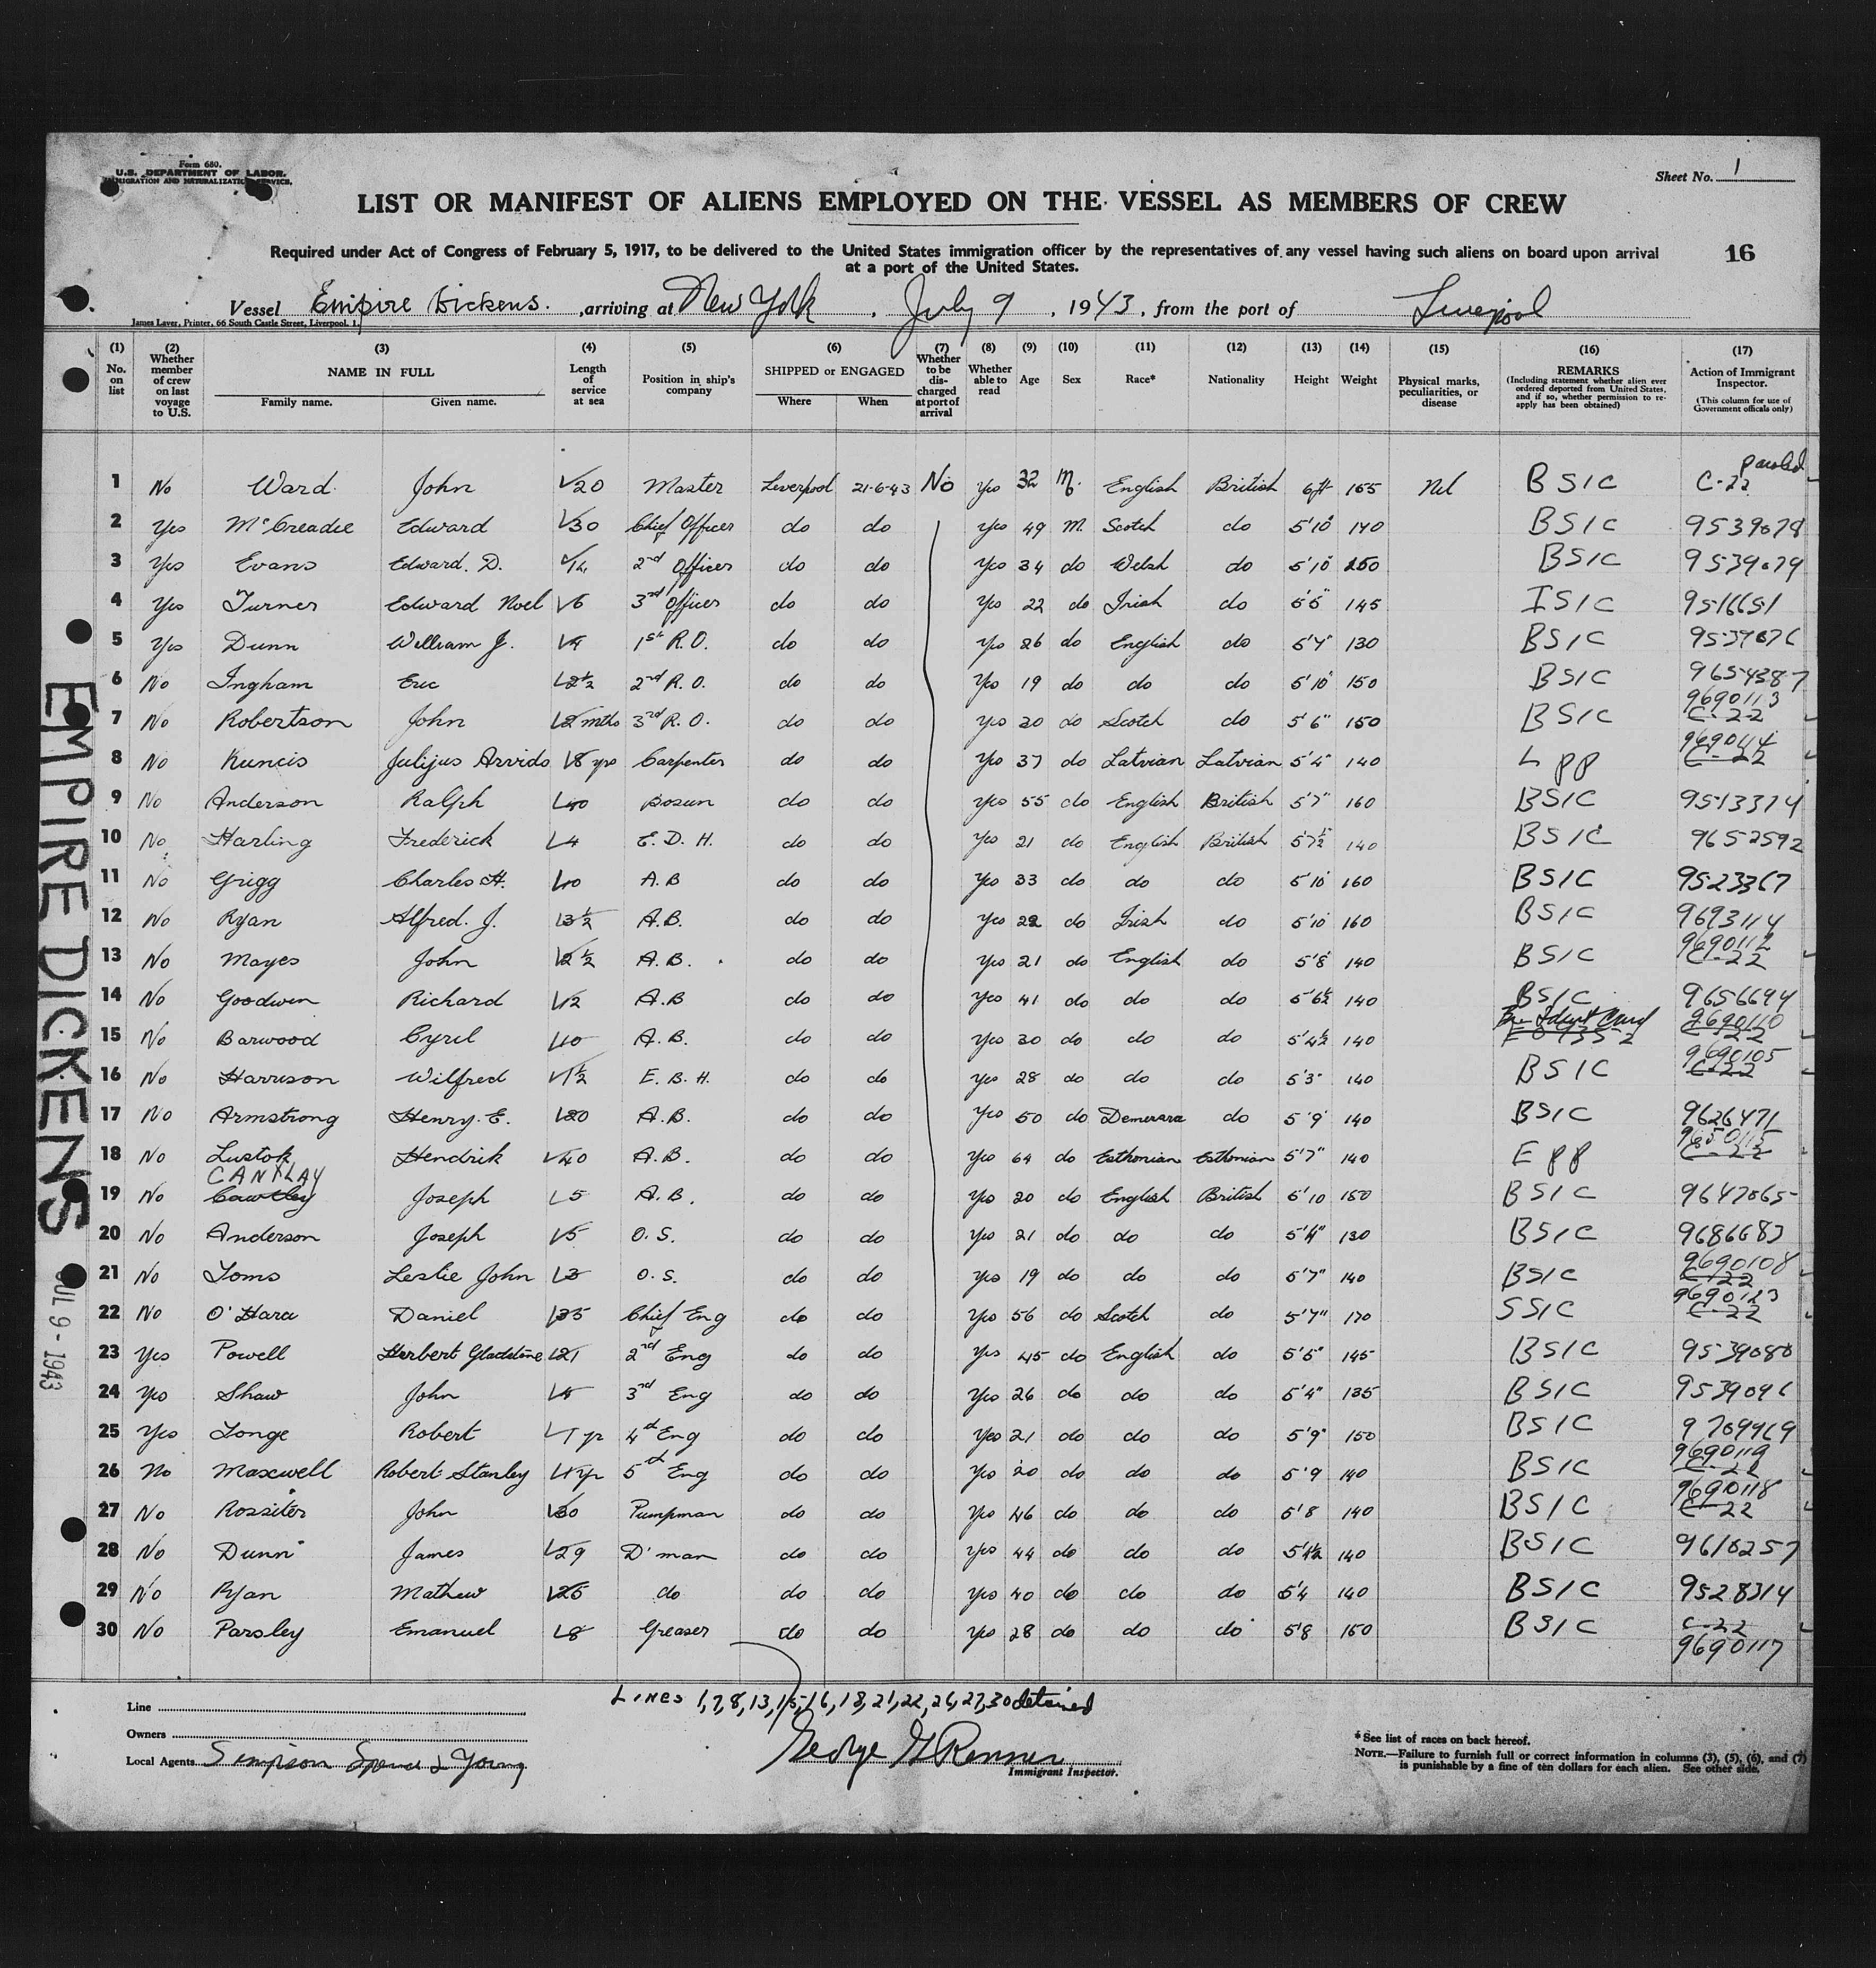 Form 680.
U.S. DEPARTMENT OF LABOR.
IMMIGRATION AND NATURALIZATION SERVICE.
Sheet No. 1
LIST OR MANIFEST OF ALIENS EMPLOYED ON THE VESSEL AS MEMBERS OF CREW
Required under Act of Congress of February 5, 1917, to be delivered to the United States immigration officer by the representatives of any vessel having such aliens on board upon arrival
at a port of the United States.
16
Vessel Empire Dickens. , arriving at New York , July 9 , 1943, from the port of Liverpool
James Laver, Printer, 66 South Castle Street, Liverpool. 1.
(1) No. on list (2) Whether member of crew on last voyage to U.S. (3) NAME IN FULL Family name. Given name. (4) Length of service at sea (5) Position in ship's company (6) SHIPPED or ENGAGED Where When (7) Whether to be discharged at port of arrival (8) Whether able to read (9) Age (10) Sex (11) Race* (12) Nationality (13) Height (14) Weight (15) Physical marks, peculiarities, or disease (16) REMARKS (Including statement whether alien ever ordered deported from United States, and if so, whether permission to re-apply has been obtained) (17) Action of Immigrant Inspector. (This column for use of Government officials only)
1 No Ward John 20 Master Liverpool 21-6-43 No Yes 32 M. English British 6ft 165 Nil BSIC paroled C-22
2 Yes McCreadie Edward 30 Chief Officer do do Yes 49 M. Scotch do 5'10" 140 BSIC 9539078
3 Yes Evans Edward. D. 2nd Officer do do Yes 34 do Welsh do 5'10" BSIC 9539079
4 Yes Turner Edward Noel 6 3rd Officer do do Yes 22 do Irish do 145 ISIC 9516651
5 Yes Dunn William J. 9 1st R.O. do do Yes 26 do English do 130 BSIC 9539076
6 No Ingham Eric 2½ 2nd R.O. do do Yes 19 do do do 5'10" 150 BSIC 9654387
7 No Robertson John 2 mths 3rd R.O. do do Yes 20 do Scotch do 5'6" 150 BSIC 9690113 C-22
8 No Kuncis Julijus Arvids 8 yrs Carpenter do do Yes 37 do Latvian Latvian 5'4" 140 L pp 9690114 C-22
9 No Anderson Ralph 40 Bosun do do Yes 55 do English British 5'7" 160 BSIC 9513374
10 No Harling Frederick 4 E.D.H. do do Yes 21 do English British 5'7½ 140 BSIC 9652592
11 No Grigg Charles H. 10 A.B do do Yes 33 do do do 5'10 160 BSIC 9523367
12 No Ryan Alfred. J. 3½ A.B. do do Yes 22 do Irish do 5'10 160 BSIC 9693114
13 No Mayes John 2½ A.B. do do Yes 21 do English do 5'8 140 BSIC 9690112 C-22
14 No Goodwin Richard 12 A.B do do Yes 41 do do do 5'6½ 140 BSIC 9656694
15 No Barwood Cyril 10 A.B. do do Yes 30 do do do 5'4½ 140 Br Ident Card 9690110 C-22
16 No Harrison Wilfred 1½ do do Yes 28 do do do 5'3" 140 BSIC 9690105 C-22
17 No Armstrong Henry. E. A.B. do do Yes 50 do Demerara do 5'9" 140 BSIC 9626471
18 No Lustok Hendrik 40 A.B. do do Yes 64 do Esthonian Esthonian 5'7" 140 E pp C-22
CANTLAY
19 No Cawtley Joseph 5 A.B. do do Yes 20 do English British 5'10 150 BSIC 9647065
20 No Anderson Joseph 5 O.S. do do Yes 21 do do do 130 BSIC 9686683
21 No Toms Leslie John 3 O.S. do do Yes 19 do do do 5'7" 140 BSIC 9690108 C-22
22 No O'Hara Daniel 35 Chief Eng do do Yes 56 do Scotch do 5'7" 170 SSIC 9690123 C-22
23 Yes Powell Herbert Gladstone 21 2nd Eng do do Yes 45 do English do 5'5" 145 BSIC 9539080
24 Yes Shaw John 3rd Eng do do Yes 26 do do do 5'4" 135 BSIC 9539096
25 Yes Tonge Robert 1 yr 4th Eng do do Yes 21 do do do 5'9" 150 BSIC 9709969
26 No Maxwell Robert Stanley 5th Eng do do Yes 20 do do do 5'9 140 BSIC 9690119 C-22
27 No Rossiter John 30 Pumpman do do Yes 46 do do do 5'8 140 BSIC 9690118 C-22
28 No Dunn James 29 D'man do do Yes 44 do do do 140 BSIC 9610257
29 No Ryan Mathew 25 do do do Yes 40 do do do 5'4 140 BSIC 9528314
30 No Parsley Emanuel 8 Greaser do do Yes 28 do do do 5'8 150 BSIC C-22 9690117
EMPIRE DICKENS
JUL 9 - 1943
LINES 1,7,8,13,15,16,18,21,22,26,27,30 detained
Line
Owners
Local Agents Simpson Spence & Young
George G Renner
Immigrant Inspector.
* See list of races on back hereof.
NOTE.—Failure to furnish full or correct information in columns (3), (5), (6), and (7)
is punishable by a fine of ten dollars for each alien. See other side.